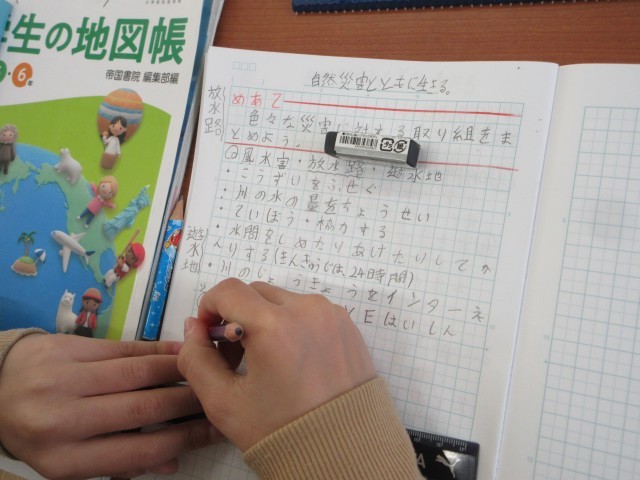 学生の地図帳
・6年
帝国書院 編集部編
自然災害とともに生きる。
めあて
色々な災害に対する取り組をま
とめよう。
放水路
①風水害・放水路・遊水地
・こうずいをふせぐ
・川の水の量をちょうせい
・ていぼう・協力する
遊水地
・水門をしめたりあけたりしてか
んりする(きんきゅうじは24時間)
・川のじょうきょうをインターネ
VEはいしん